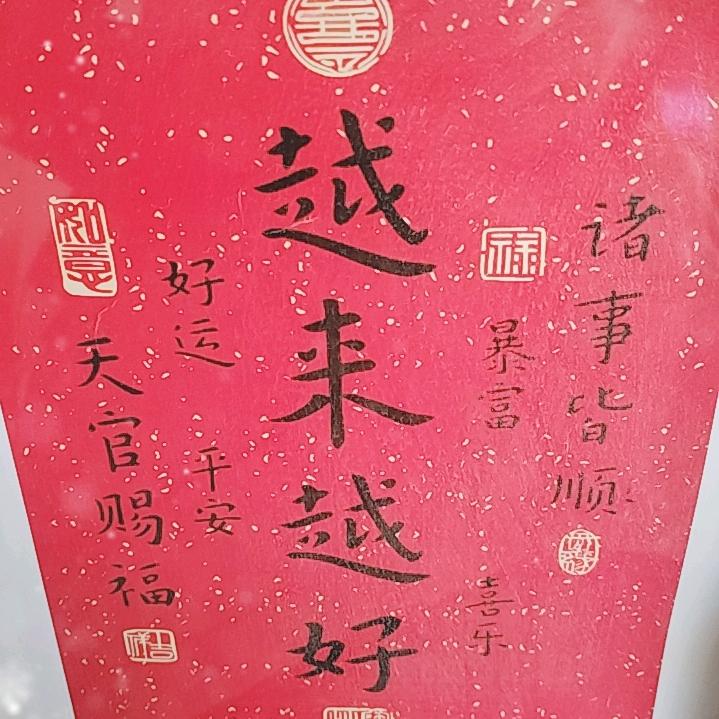 诸事皆顺
禄
暴富
喜乐
越来越好
好运
平安
如意
天官赐福